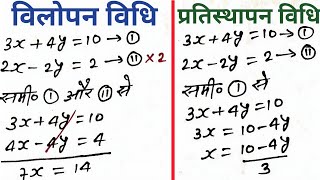 विलोपन विधि
3x+4y=10→①
2x-2y=2→⑪ ×2
समी० ① और ⑪ से
3x+4y=10
4x-4y=4
7x=14
प्रतिस्थापन विधि
3x+4y=10→①
2x-2y=2→⑪
समी० ① से
3x+4y=10
3x=10-4y
x=10-4y
3